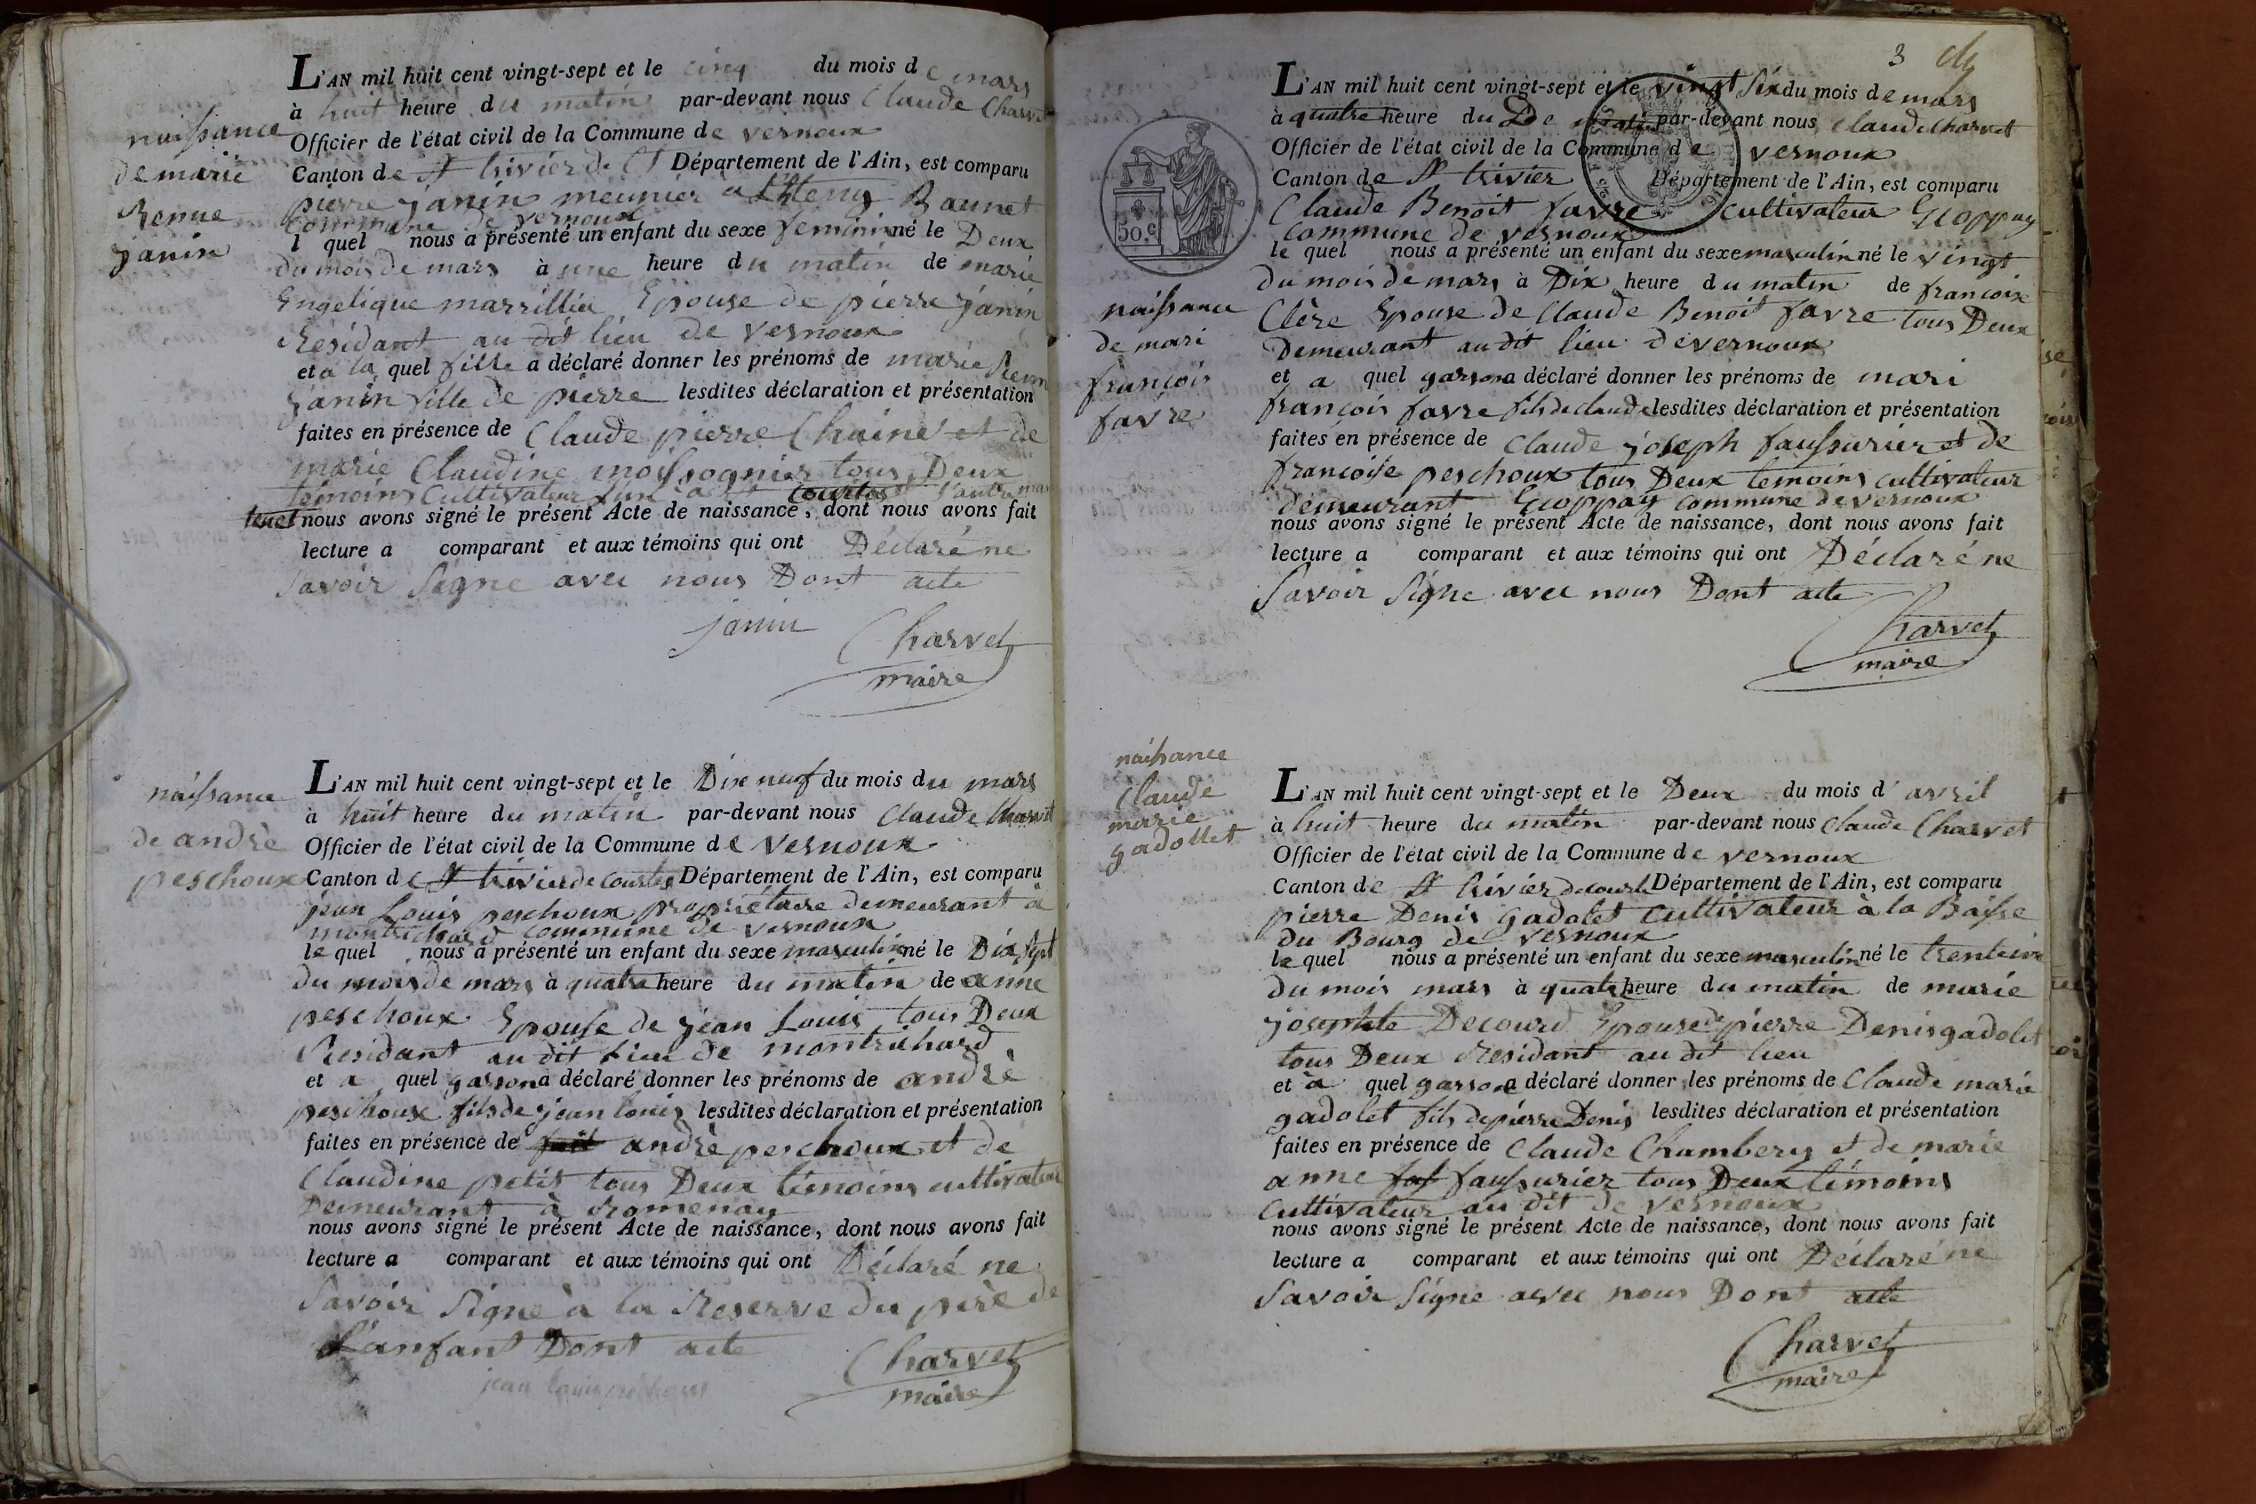 naissance
de marie
Renne
janin
L'AN mil huit cent vingt-sept et le cinq du mois de mars
à huit heure du matin par-devant nous Claude Charvet
Officier de l'état civil de la Commune de vernoux
Canton de St trivier de Ct Département de l'Ain, est comparu
pierre janin meunier a
commune de vernoux
l quel nous a présenté un enfant du sexe feminin né le Deux
du mois de mars à une heure du matin de marie
Engelique marsillia Epouse de pierre janin
Résidant au dit lieu de vernoux
et a la quel fille a déclaré donner les prénoms de marie Renn
janin fille de pierre lesdites déclaration et présentation
faites en présence de Claude pierre Chaine et de
marie Claudine moissognier tous Deux
témoins Cultivateur l'un a Courtes l'autre
nous avons signé le présent Acte de naissance, dont nous avons fait
lecture a comparant et aux témoins qui ont Déclaré ne
Savoir Signe avec nous Dont acte
janin Charvet
maire
naissance
de andrè
peschoux
L'AN mil huit cent vingt-sept et le Dix neuf du mois du mars
à huit heure du matin par-devant nous Claude Charvet
Officier de l'état civil de la Commune de vernoux
Canton de St trivier de Courtes Département de l'Ain, est comparu
jean Louis peschoux propriétaire demeurant à
montrichard commune de vernoux
le quel nous a présenté un enfant du sexe masculin né le Dix Sept
du mois de mars à quatre heure du matin de anne
peschoux Epouse de jean Louis tous Deux
Residant au dit lieu de montrichard
et a quel garson a déclaré donner les prénoms de andrè
peschoux fils de jean louis lesdites déclaration et présentation
faites en présence de andrè peschoux et de
Claudine petit tous Deux témoins cultivateur
Demeurant à Romenay
nous avons signé le présent Acte de naissance, dont nous avons fait
lecture a comparant et aux témoins qui ont Déclaré ne
Savoir Signe à la Reserve du père de
L'anfant Dont acte
Charvet
jean louis peschoux maire
3
30.c
naissance
de mari
françois
favre
L'AN mil huit cent vingt-sept et le vingt Six du mois de mars
à quatre heure du De par-devant nous Claude Charvet
Officier de l'état civil de la Commune de vernoux
Canton de St trivier Département de l'Ain, est comparu
Claude Benoit favre cultivateur Ecoppay
commune de vernoux
le quel nous a présenté un enfant du sexe masculin né le vingt
du mois de mars à Dix heure du matin de françoise
Clère Epouse de Claude Benoit favre tous Deux
Demeurant au dit lieu de vernoux
et a quel garson a déclaré donner les prénoms de mari
françois favre fils de claude lesdites déclaration et présentation
faites en présence de Claude joseph faussurier et de
françoise peschoux tous Deux temoins cultivateur
demeurant Ecoppay commune de vernoux
nous avons signé le présent Acte de naissance, dont nous avons fait
lecture a comparant et aux témoins qui ont Déclaré ne
Savoir Signe avec nous Dont acte
Charvet
maire
naissance
Claude
marie
gadollet
L'AN mil huit cent vingt-sept et le Deux du mois d'avril
à huit heure du matin par-devant nous Claude Charvet
Officier de l'état civil de la Commune de vernoux
Canton de St trivier de courte Département de l'Ain, est comparu
pierre Denis gadolet cultivateur à la Baisse
du Bourg de vernoux
le quel nous a présenté un enfant du sexe masculin né le
du mois mars à quatre heure du matin de marie
josephte Decourd Epouse de pierre Denis gadolet
tous Deux Residant au dit lieu
et a quel garson a déclaré donner les prénoms de Claude marie
gadolet fils de pierre Denis lesdites déclaration et présentation
faites en présence de Claude Chambery et de marie
anne faussurier tous Deux témoins
Cultivateur au dit de vernoux
nous avons signé le présent Acte de naissance, dont nous avons fait
lecture a comparant et aux témoins qui ont Déclaré ne
Savoir Signe avec nous Dont acte
Charvet
maire